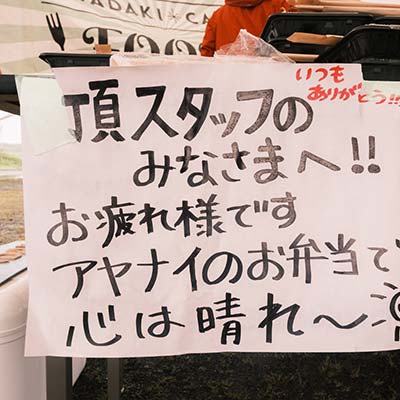 いつも
ありがとう!!
頂スタッフの
みなさまへ!!
お疲れ様です
アヤナイのお弁当で
心は晴れ〜